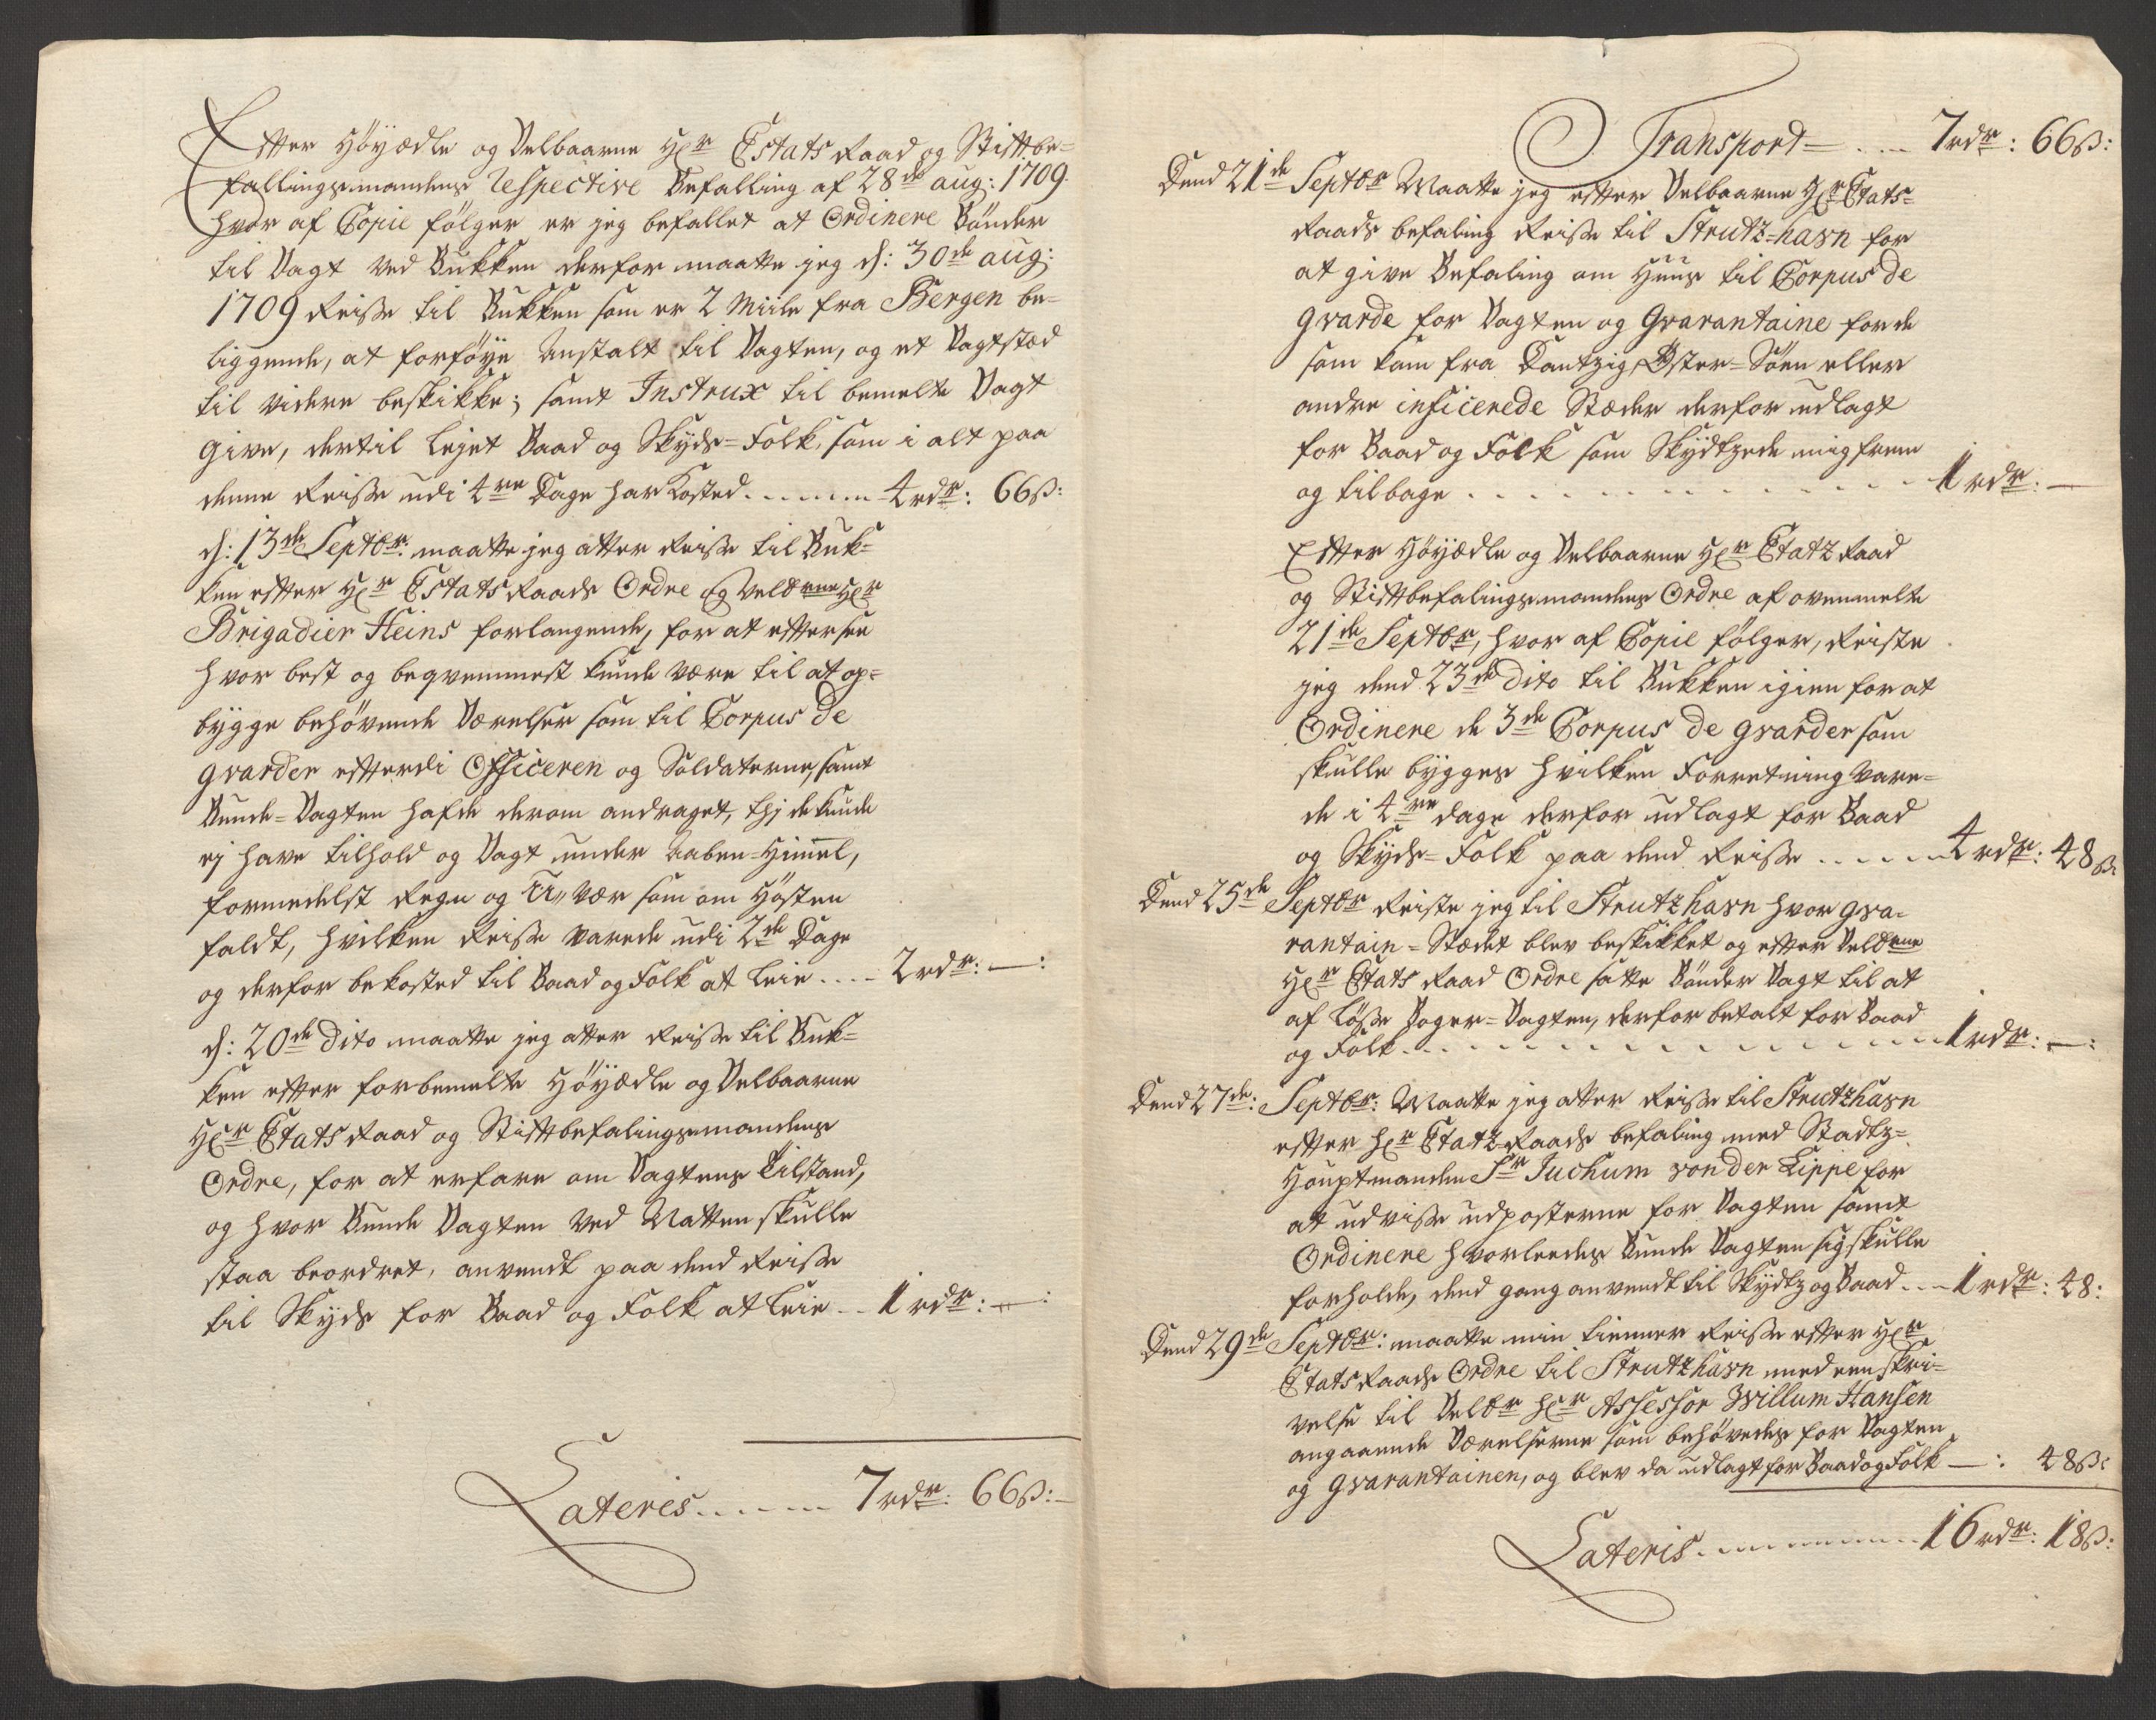 Efter Höyædle og Velbaarne Hr: Estats Raad og Stiftbe=
fallingsmandens respective Befalling af 28de aug: 1709.
hvor af Copie fölger er jeg befallet at Ordinere Bönder
til Vagt ved Bukken derfor maatte jeg d: 30de aug:
1709 Reisse til Bukken som er 2 Miile fra Bergen be=
liggende, at forföye Anstalt til Vagten, og et Vagtstæd
til videre beskikke; samt Instrux til bemelte Vagt
give, dertil lejet Baad og Skyds=Folk, som i alt paa
denne Reisse udi 4re Dage har Kosted ...... 4 rdr: 66 ß:
d: 13de Septbr: maatte jeg atter Reisse til Buk=
ken efter Hr Estats Raads Ordre og Velbrne Hr
Brigadier Heins forlangende, for at efftersee
hvor best og beqvemmest kunde være til at op=
bygge behövende Værelser som til Corpus de
gvarder efterdi Officeren og Soldaterne, samt
Bunde=Vagten hafde derom andraget, thj de kunde
ej have tilhold og Vagt under aaben=Himel,
formedelst Regn og U,,vær som om Hösten
faldt, hvilken Reisse varede udi 2de Dage
og derfor bekosted til Baad og Folk at leie .... 2 rdr: —:
d: 20de Dito maatte jeg atter Reisse til Buk=
ken efter forbemelte Höyædle og Velbaarne
Hr Etats Raad og Stiftbefalingsmandens
Ordre, for at erfare om Vagtens tilstand,
og hvor Bunde Vagten ved Natten skulle
staa beordret, anvendt paa dend Reisse
til Skyds for Baad og Folk at leie .. 1 rdr: —:
Lateris ...... 7 rdr: 66 ß:
Transport = .... 7 rdr: 66 ß:
Dend 21de Septbr Maatte jeg efter Velbaarne Hr Etats=
Raads befaling Reisse til Strutz=havn for
at give Befaling om Huus til Corpus de
gvarde for Vagten og Gvarantaine for de
som kom fra Dantzig, Öster=Söen eller
andre inficerede Stæder derfor udlagt
for Baad og Folk som Skydtzede mig frem
og tilbage ............... 1 rdr: —
Efter Höyædle og Velbaarne Hr Etatz Raad
og Stiftbefalingsmandens Ordre af ovenmelte
21de Septbr, hvor af Copie fölger, Reiste
jeg dend 23de dito til Bukken igien for at
Ordinere de 3de Corpus de gvarder som
skulle bygges hvilken Forretning vare=
de i 4re dage derfor udlagt for Baad
og Skyds=Folk paa dend Reisse ...... 4 rdr: 48 ß:
Dend 25de Septbr Reiste jeg til Strutzhavn hvor gva=
rantain=Stædet blev beskikket og efter Velbrne
Hr Etats Raad Ordre satte Bönder Vagt til at
af lösse Borger=Vagten, derfor betalt for Baad
og Folk ................ 1 rdr: —:
Dend 27de: Septbr: Maatte jeg atter Reisse til Strutzhavn
efter Hr Etatz=Raads befaling med Stadtz=
Hauptmanden Sr Juchum von der Lippe for
at udvisse udposterne for Vagten samt
Ordinere hvorleedes Bunde Vagten sig skulle
forholde, dend gang anvendt til Skydtz og Baad ... 1 rdr: 48:
Dend 29de Septbr: maatte min tienner Reisse efter Hr
Etats Raads Ordre til Strutzhavn med een skri=
velse til Velbr Hr Assessor Willum Hansen
angaaende Værelserne som behövedes for Vagten
og gvarantainen, og blev da udlagt for Baad og Folk —: 48 ß:
Lateris .......... 16 rdr: 18 ß: